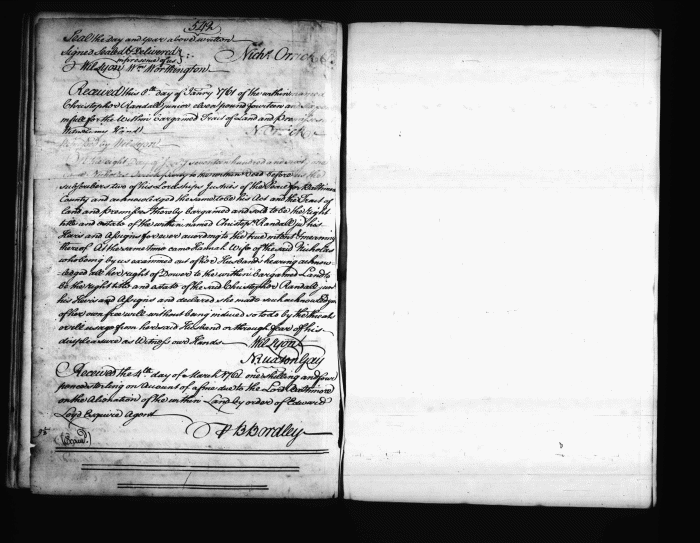 542
Seal the day and year above written
Signed Sealed & Delivered
in presence of us Nichs. Orrick
Wm Lyon Wm Worthington
Received this 8th day of Janry 1761 of the within named
Christopher Randall junior eleven pounds fourteen
in full for the within bargained Tract of Land and Premises
Witness my Hand N. Orrick
day of seventeen hundred and sixty
party to the within deed before us the
subscribers two of his Lordships Justices of the Peace for Baltimore
County and acknowledged the same to be his Act and the Tract of
Land and premises thereby bargained and sold to be the right
title and estate of the within named Christopr. Randall jur his
Heirs and Assigns for ever according to the true intent & meaning
thereof At the same time came Hannah Wife of the said Nicholas
who being by us examined out of her Husbands hearing acknow
ledged all her right of Dower to the within bargained Land to
be the right title and estate of the said Christopher Randall jun
his Heirs and Assigns and declared she made such acknowledgmt
of her own free will without being induced so to do by the threats
or ill usage from her said Husband or through fear of his
displeasure as Witness our Hands Wm Lyon
N. Ruxton Gay
Received the 4th day of March 1761 one shilling and four
pence sterling on Account of a fine due to the Lord Baltimore
on the Alienation of the within Land by order of Edward
Loyd Esquire Agent
P B Bordley